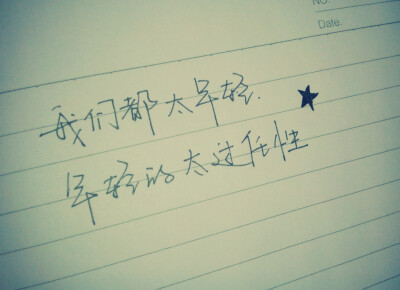 NO.
Date.
我们都太年轻.
年轻的太过任性